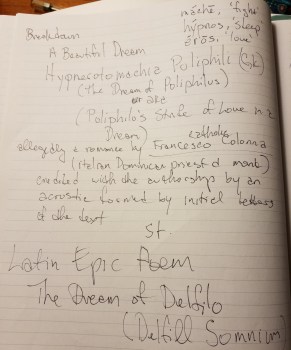 máchē, 'fight'
hýpnos, 'sleep
érōs, 'love'
Breakdown
A Beautiful Dream
Hypnerotomachia Poliphili
(The Dream of Poliphilus)
or are
(Poliphilo's Strife of Love in a
Dream)
catholic
allegedly a romance by Francesco Colonna
(Italian Dominican priest & monk)
credited with the authorship by an
acrostic formed by initial letters
of the text
St
Latin Epic Poem
The Dream of Delfilo
(Delfill Somnium)